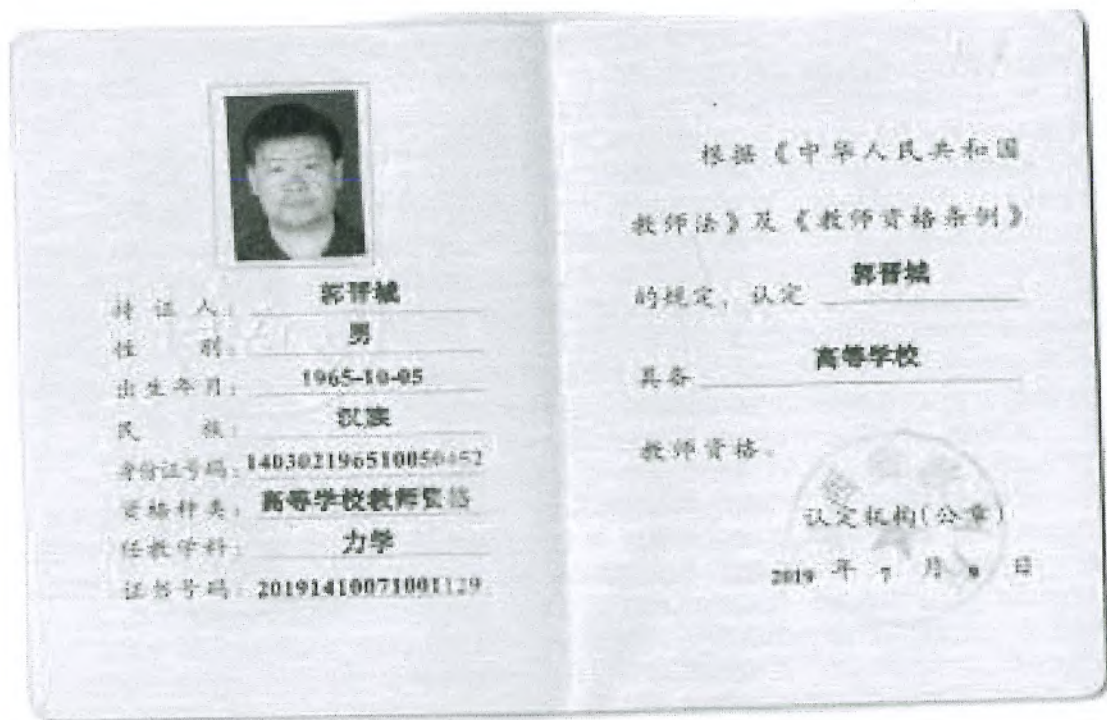 持证人：郭晋城
性别：男
出生年月：1965-10-05
民族：汉族
身份证号码：140302196510050452
资格种类：高等学校教师资格
任教学科：力学
证书号码：20191410071001129
根据《中华人民共和国
教师法》及《教师资格条例》
的规定，认定 郭晋城
具备 高等学校
教师资格。
认定机构(公章)
2019 年 7 月 9 日